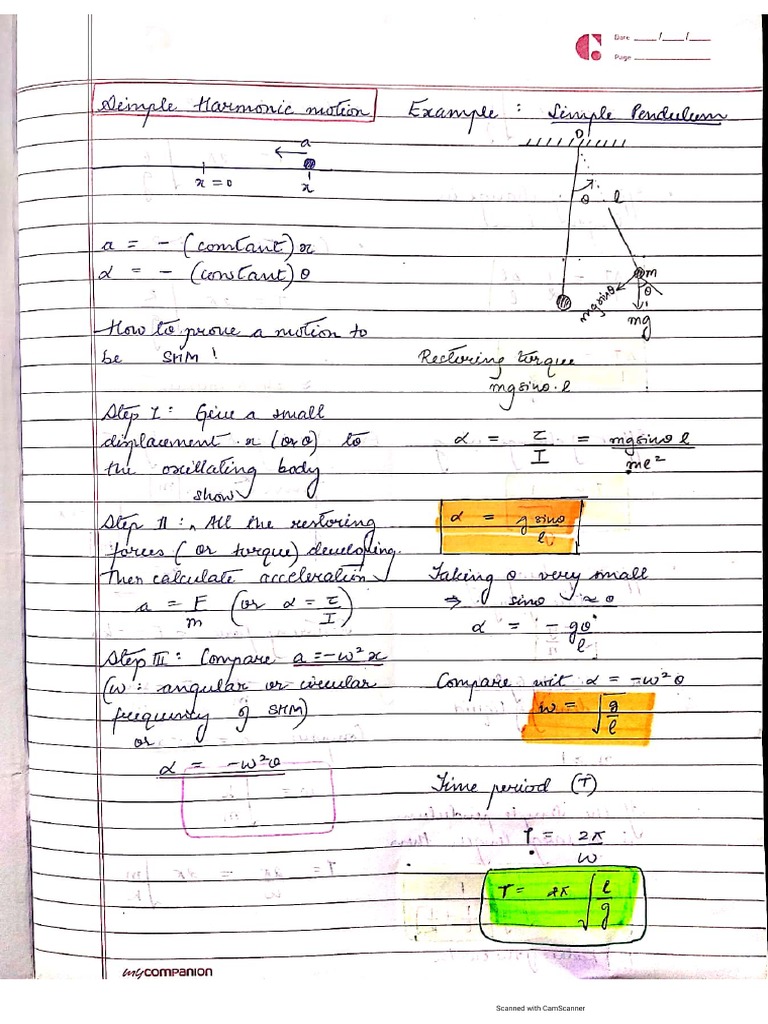 Date ___/___/___
Page
Simple Harmonic motion
a
x = 0
x
a = - (constant) x
α = - (constant) θ
How to prove a motion to
be SHM!
Step I: Give a small
displacement x (or θ) to
the oscillating body
show
Step II: All the restoring
forces (or torque) developing.
Then calculate acceleration
a = F/m (or α = τ/I)
Step III: Compare a = -ω²x
(ω: angular or circular
frequency of SHM)
or
α = -ω²θ
Example: Simple Pendulum
O
θ
l
m
θ
mgsinθ
mg
Restoring torque
mgsinθ·l
α = τ/I = mgsinθ l/ml²
α = g sinθ/l
Taking θ very small
⇒ sinθ ≈ θ
α = - gθ/l
Compare wit α = -ω²θ
ω = √g/l
Time period (T)
T = 2π/ω
T = 2π √l/g
mycompanion
Scanned with CamScanner